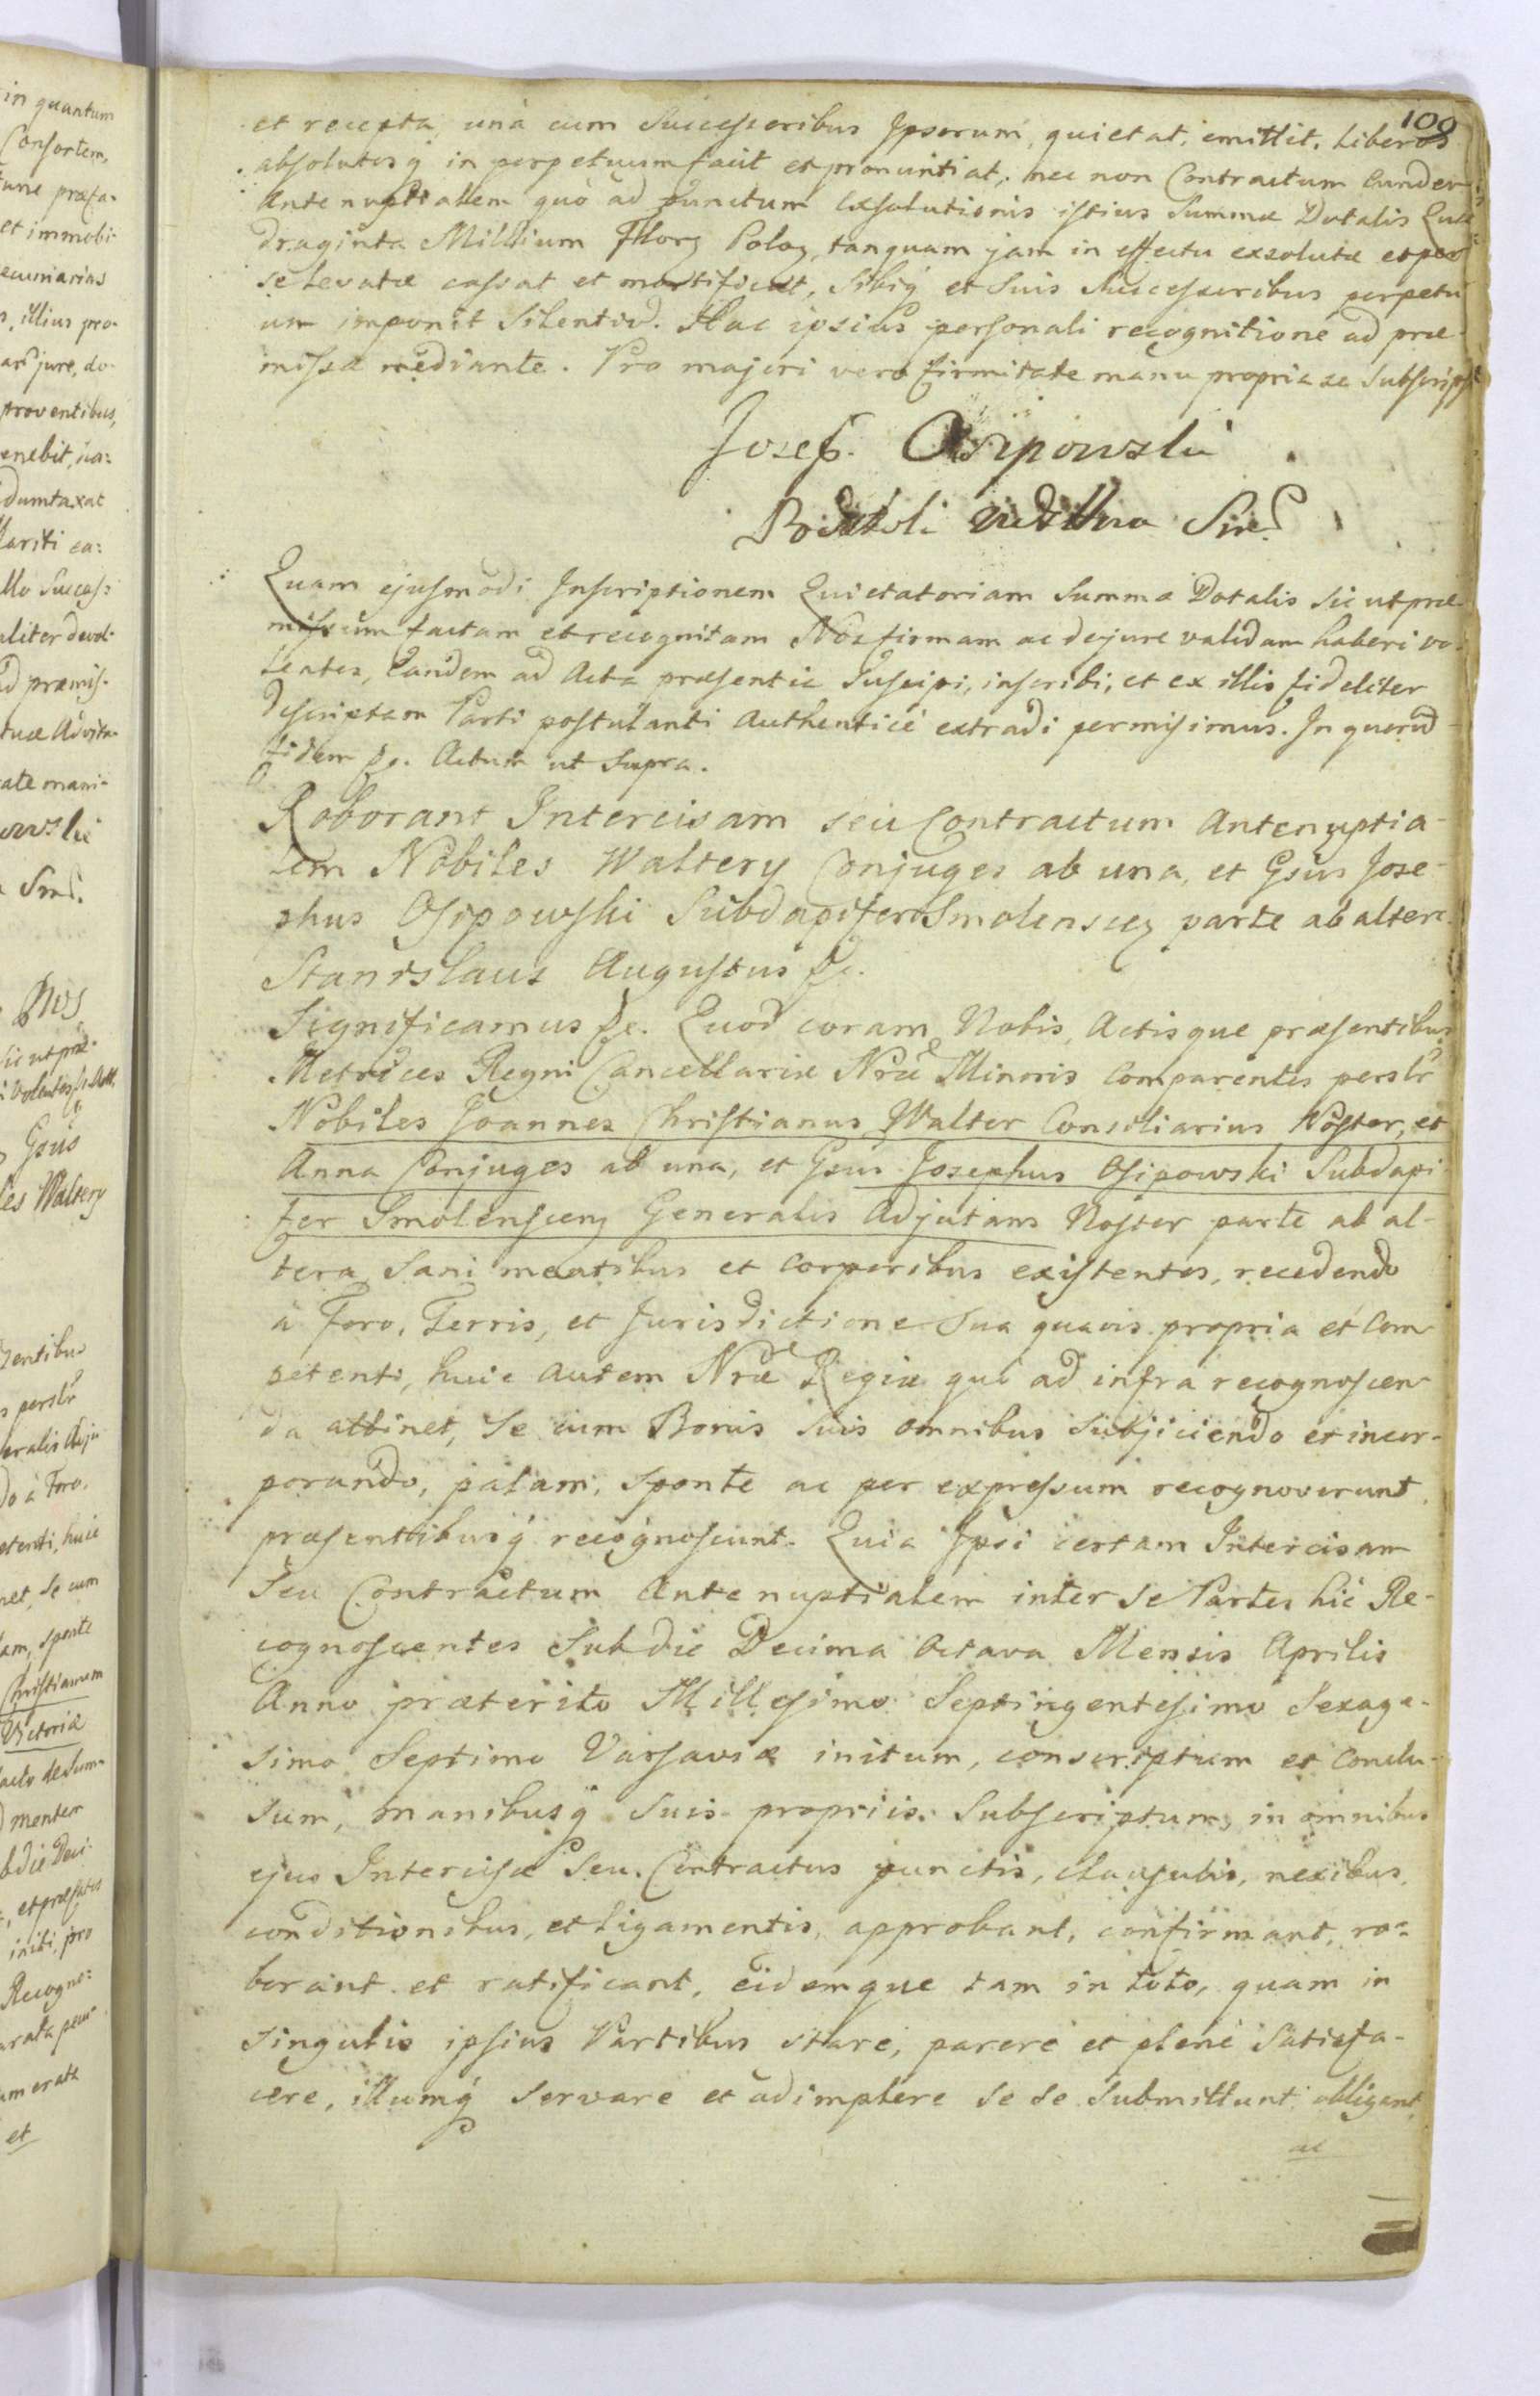 109
et recepta, una cum Successoribus Ipsorum, quietat, emittit, Liberos
absolutosq́ in perpetuum facit et pronuntiat, nec non Contractum Eundem
Antenuptialem quò ad punctum Exsolutionis istius Summæ Dotalis Qua
draginta Millium Florg Polog, tanquam jam in effectu exsolutæ et per
se levatæ cassat et mortificat, Sibiq́ et Suis Successoribus perpetu
um imponit Silentiu. Hac ipsius personali recognitione ad præ-
missa mediante. Pro majori vero firmitate manu propria se Subscripsit
Josef. Osipowski
Podstoli Smol
Quam ejusmodi Inscriptionem Quietatoriam Summæ Dotalis sic ut præ-
missum factam et recognitam Nos firmam ac dejure validam haberi vo-
lentes, Eandem ad Acta præsentia Suscipi, inscribi, et ex illis fideliter
descriptam Parti postulanti Authenticè extradi permisimus. In quorũ
fidem &c. Actum ut Supra.
Roborant Intercisam seu Contractum Antenuptia-
lem Nobiles Waltery Conjuges ab una, et Gsus Jose-
phus Osipowski Subdapifer Smolenscy parte ab altera.
Stanislaus Augustus &c.
Significamus &c. Quod coram Nobis, Actisque præsentibus
Metrices Regni Cancellariæ Nræ Minoris Comparentes perslr
Nobiles Joannes Christianus Walter Consiliarius Noster, et
Anna Conjuges ab una, et Gsus Josephus Osipowski Subdapi-
fer Smolenscen Generalis Adjutans Noster parte ab al-
tera Sani mentibus et Corporibus existentes, recedendo
à Foro, Terris, et Jurisdictione Sua quavis propria et Com
petenti, huic autem Nræ Regiæ quò ad infra recognoscen-
da attinet, Se cum Bonis Suis omnibus Subjiciendo et incor-
porando, palam, Sponte ac per expressum recognoverunt,
præsentibusq́ recognoscunt. Quia Ipsi certam Intercisam
Seu Contractum Antenuptialem inter Se Partes hic Re-
cognoscentes Sub die Decima Octava Mensis Aprilis
Anno præterito Millesimo Septingentesimo Sexage-
simo Septimo Varsaviæ initum, conscriptum et Conclu-
sum, manibusq́ Suis propriis Subscriptum, in omnibus
ejus Intercisæ Seu Contractus punctis, clausulis, nexibus,
conditionibus, et Ligamentis, approbant, confirmant, ro-
borant et ratificant, Eidemque tam in toto, quam in
Singulis ipsius Partibus stare, parere et plenè Satisfa-
cere, illumq́ Servare et adimplere Se se Submittunt obligant,
ac